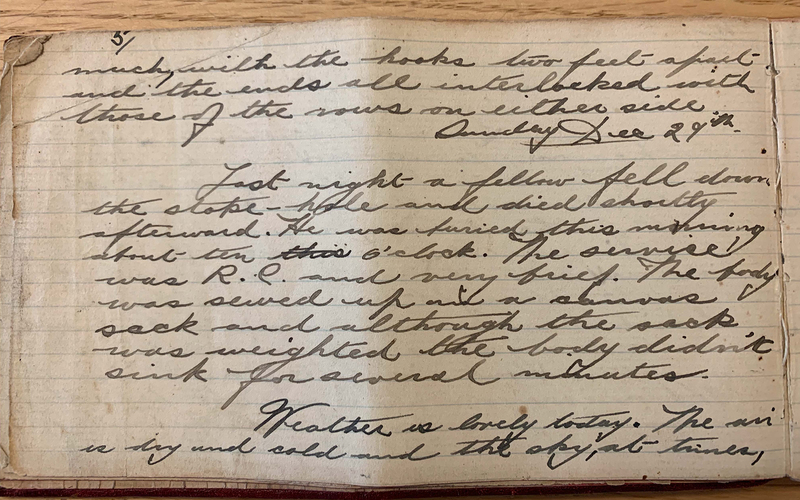 5/
much, with the hooks two feet apart
and the ends all interlocked with
those of the rows on either side.
Sunday Dec 29th.
Last night a fellow fell down
the stoke-hole and died shortly
afterward. He was buried this morning
about ten this o'clock. The service
was R.C. and very brief. The body
was sewed up in a canvas
sack and although the sack
was weighted the body didn't
sink for several minutes.
Weather is lovely today. The air
is dry and cold and the sky, at times,